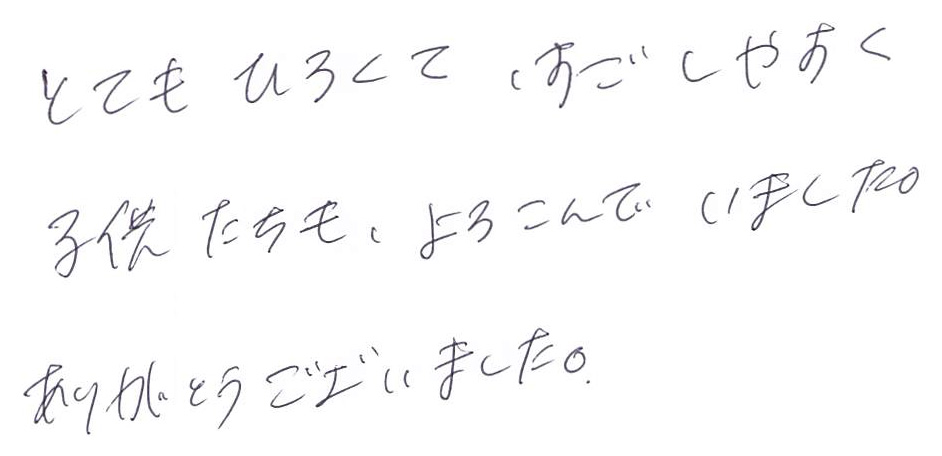 とてもひろくて、すごしやすく
子供たちも、よろこんでいました。
ありがとうございました。